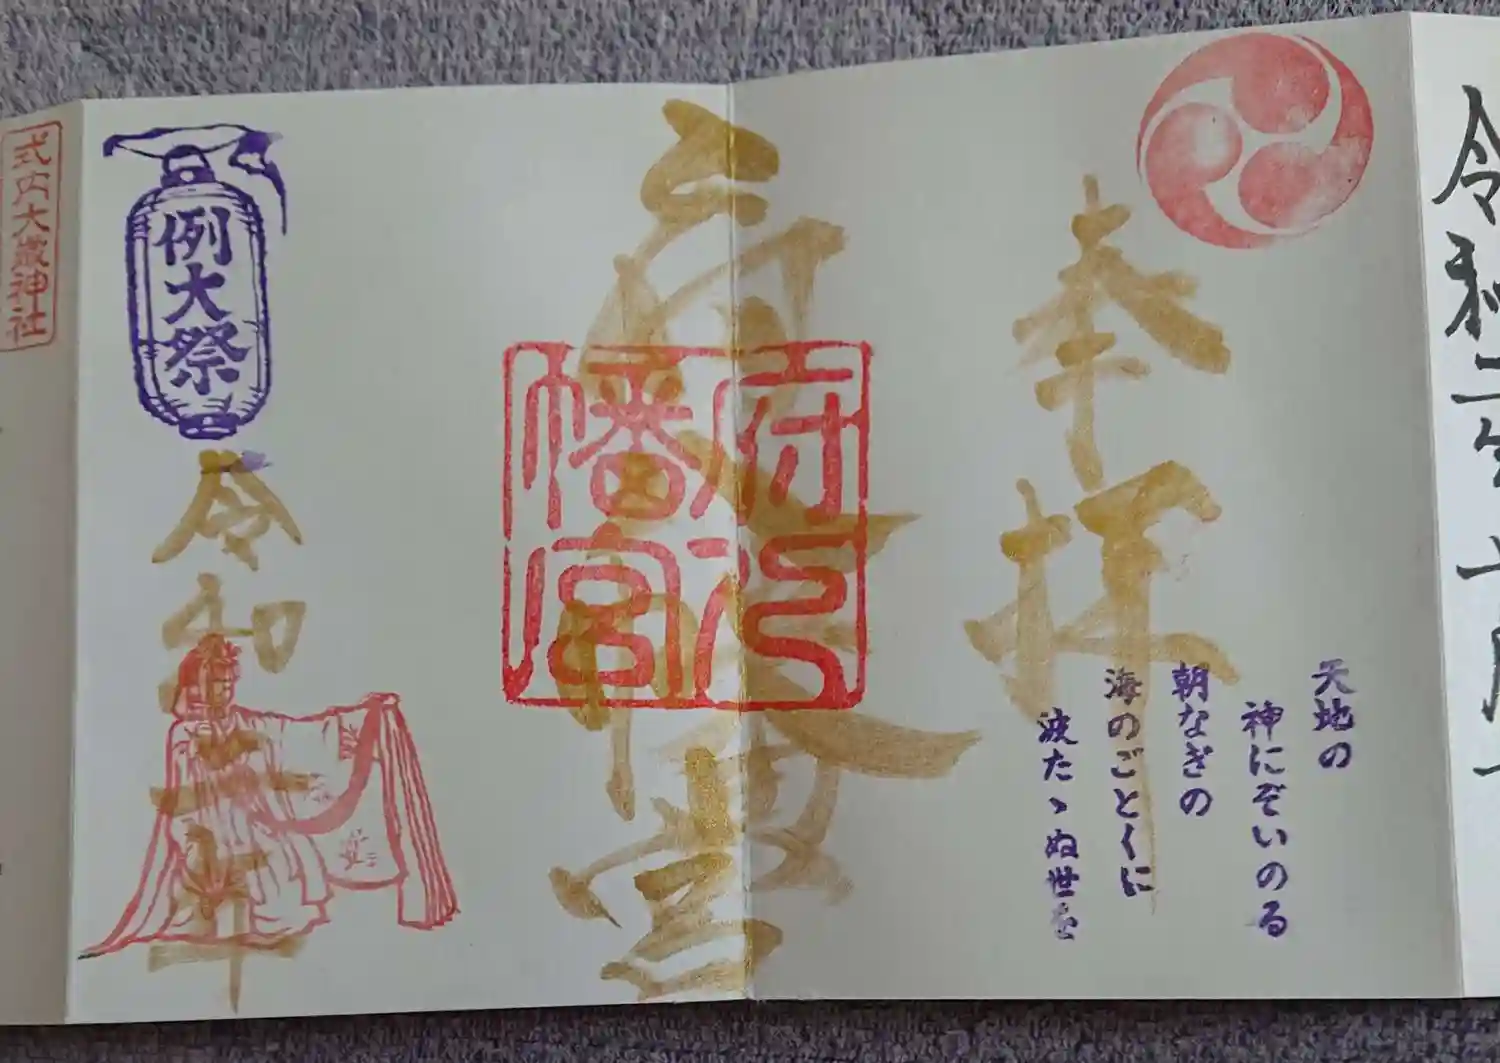 令和二年
奉拝
天地の
神にぞいのる
朝なぎの
海のごとくに
波たゝぬ世を
府八幡宮
府八幡宮
例大祭
令和二年
式内大歳神社